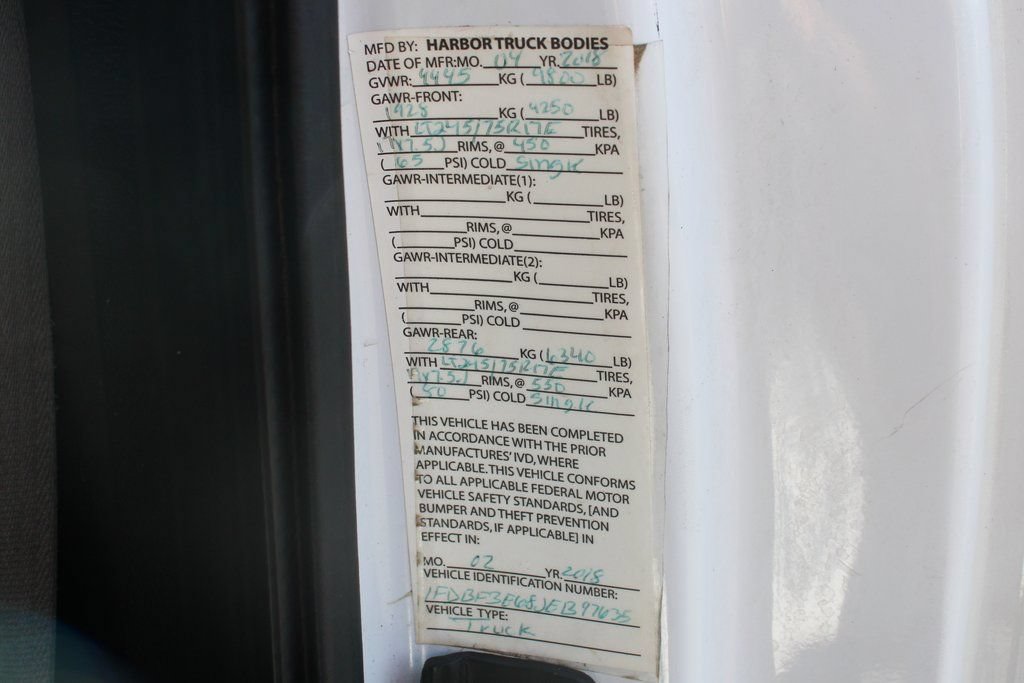 MFD BY: HARBOR TRUCK BODIES
DATE OF MFR:MO. 04 YR. 2018
GVWR: 4445 KG ( 9800 LB)
GAWR-FRONT:
1928 KG ( 4250 LB)
WITH LT245/75R17E TIRES,
17X7.5J RIMS, @ 450 KPA
( 65 PSI) COLD Single
GAWR-INTERMEDIATE(1):
KG ( LB)
WITH TIRES,
RIMS, @ KPA
( PSI) COLD
GAWR-INTERMEDIATE(2):
KG ( LB)
WITH TIRES,
RIMS, @ KPA
( PSI) COLD
GAWR-REAR:
2876 KG ( 6340 LB)
WITH LT245/75R17E TIRES,
17X7.5J RIMS, @ 550 KPA
( 80 PSI) COLD Single
THIS VEHICLE HAS BEEN COMPLETED
IN ACCORDANCE WITH THE PRIOR
MANUFACTURES' IVD, WHERE
APPLICABLE. THIS VEHICLE CONFORMS
TO ALL APPLICABLE FEDERAL MOTOR
VEHICLE SAFETY STANDARDS, [AND
BUMPER AND THEFT PREVENTION
STANDARDS, IF APPLICABLE] IN
EFFECT IN:
MO. 02 YR. 2018
VEHICLE IDENTIFICATION NUMBER:
1FDBF3E68JEB97635
VEHICLE TYPE:
Truck